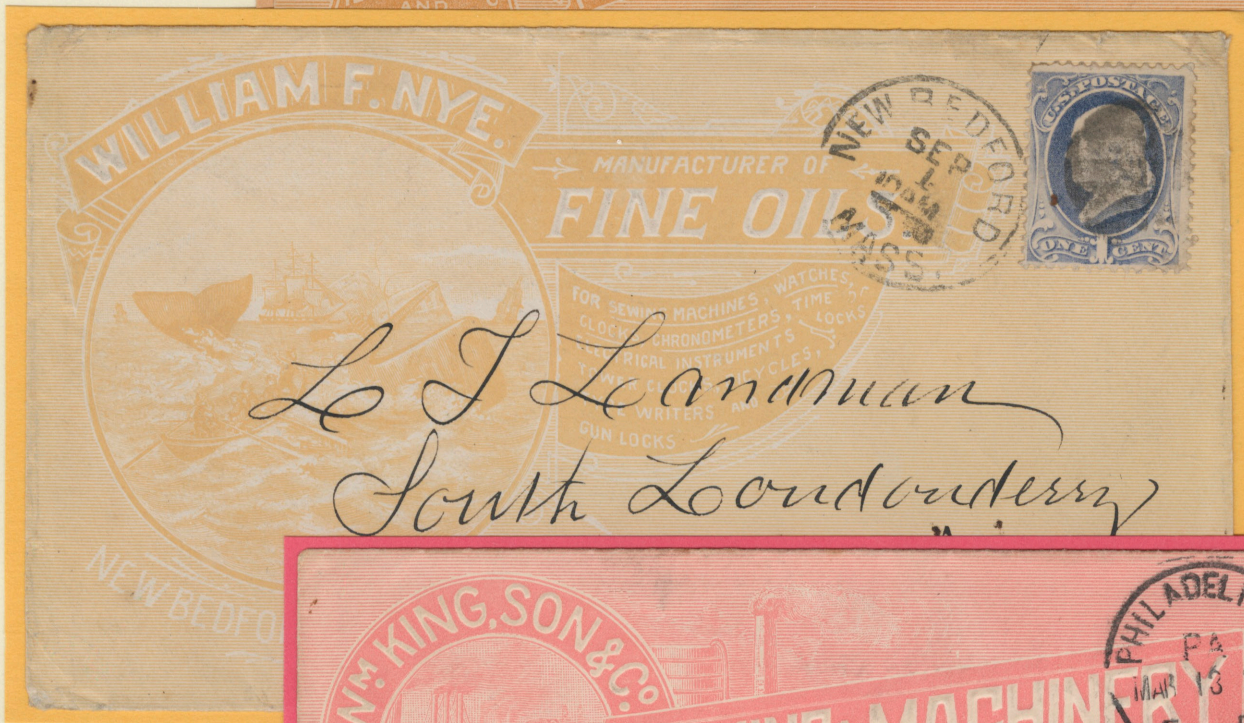 AND
WILLIAM F. NYE.
MANUFACTURER OF
FINE OILS
FOR SEWING MACHINES, WATCHES,
CLOCKS, CHRONOMETERS, TIME LOCKS
ELECTRICAL INSTRUMENTS
TOWER CLOCKS, BICYCLES,
WRITERS AND
GUN LOCKS
NEW BEDFO
NEW BEDFORD
SEP
MASS.
U.S. POSTAGE
ONE 1 CENT
L T Landman
South Londonderry
Wm KING, SON & Co
MACHINERY
PHILADEL
PA
MAR 13